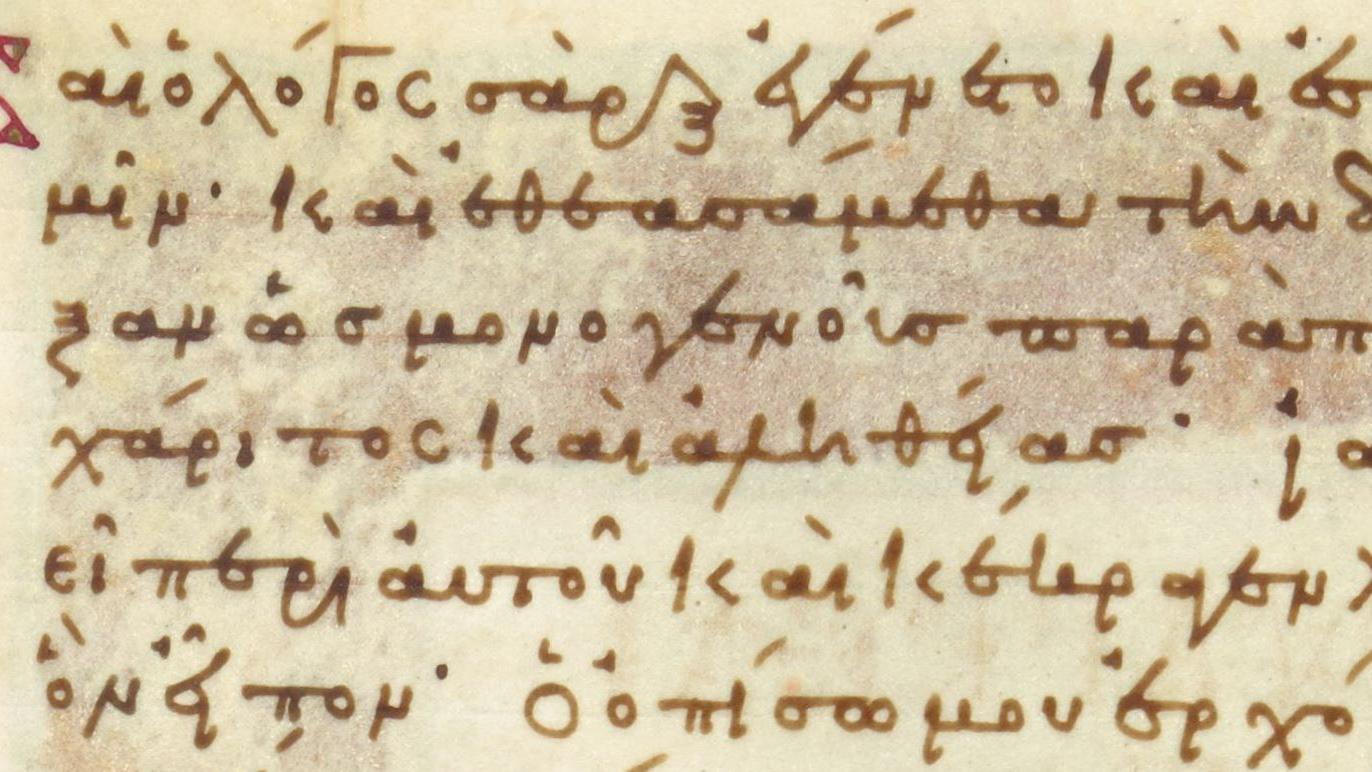 Καὶ ὁ λόγος σὰρξ ἐγένετο καὶ ἐσ
μῖν· καὶ ἐθεασάμεθα τὴν δ
ξαν ὡς μονογενοῦς παρὰ π
χάριτος καὶ ἀληθείας· ἰ
εῖ περὶ αὐτοῦ καὶ κέκραγεν
ὃν εἶπον· Ὁ ὀπίσω μου ἐρχό